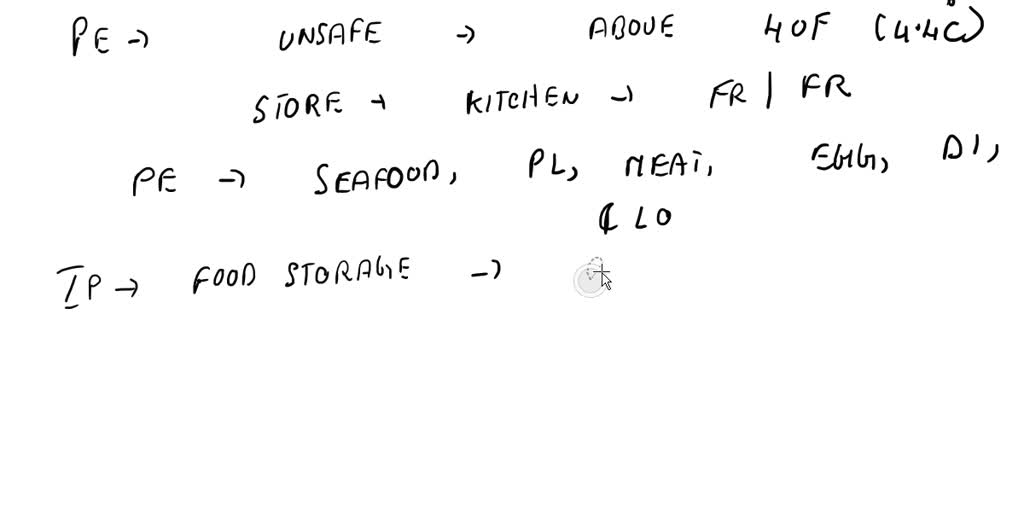 PE → UNSAFE → ABOVE 40F (4.4°C)
STORE → KITCHEN → FR | FR
PE → SEAFOOD, PL, MEAT, EGG, DI,
& LO
IP → FOOD STORAGE →